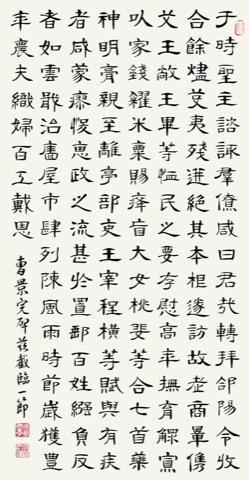 于時聖主諮諏羣僚咸曰君哉轉拜郃陽令收
合餘燼芟夷殘迸絕其本根遂訪故老商量儁
艾王敞王畢等恤民之要存慰高年撫育鰥寡
以家錢糴米粟賜癃盲大女桃斐等合七首藥
神明膏親至離亭部吏王宰程橫等賦與有疾
者咸蒙瘳悛惠政之流甚於置郵百姓繈負反
者如雲戢治廧屋市肆列陳風雨時節歲獲豐
年農夫織婦百工戴恩
曹景完碑茲截臨一節